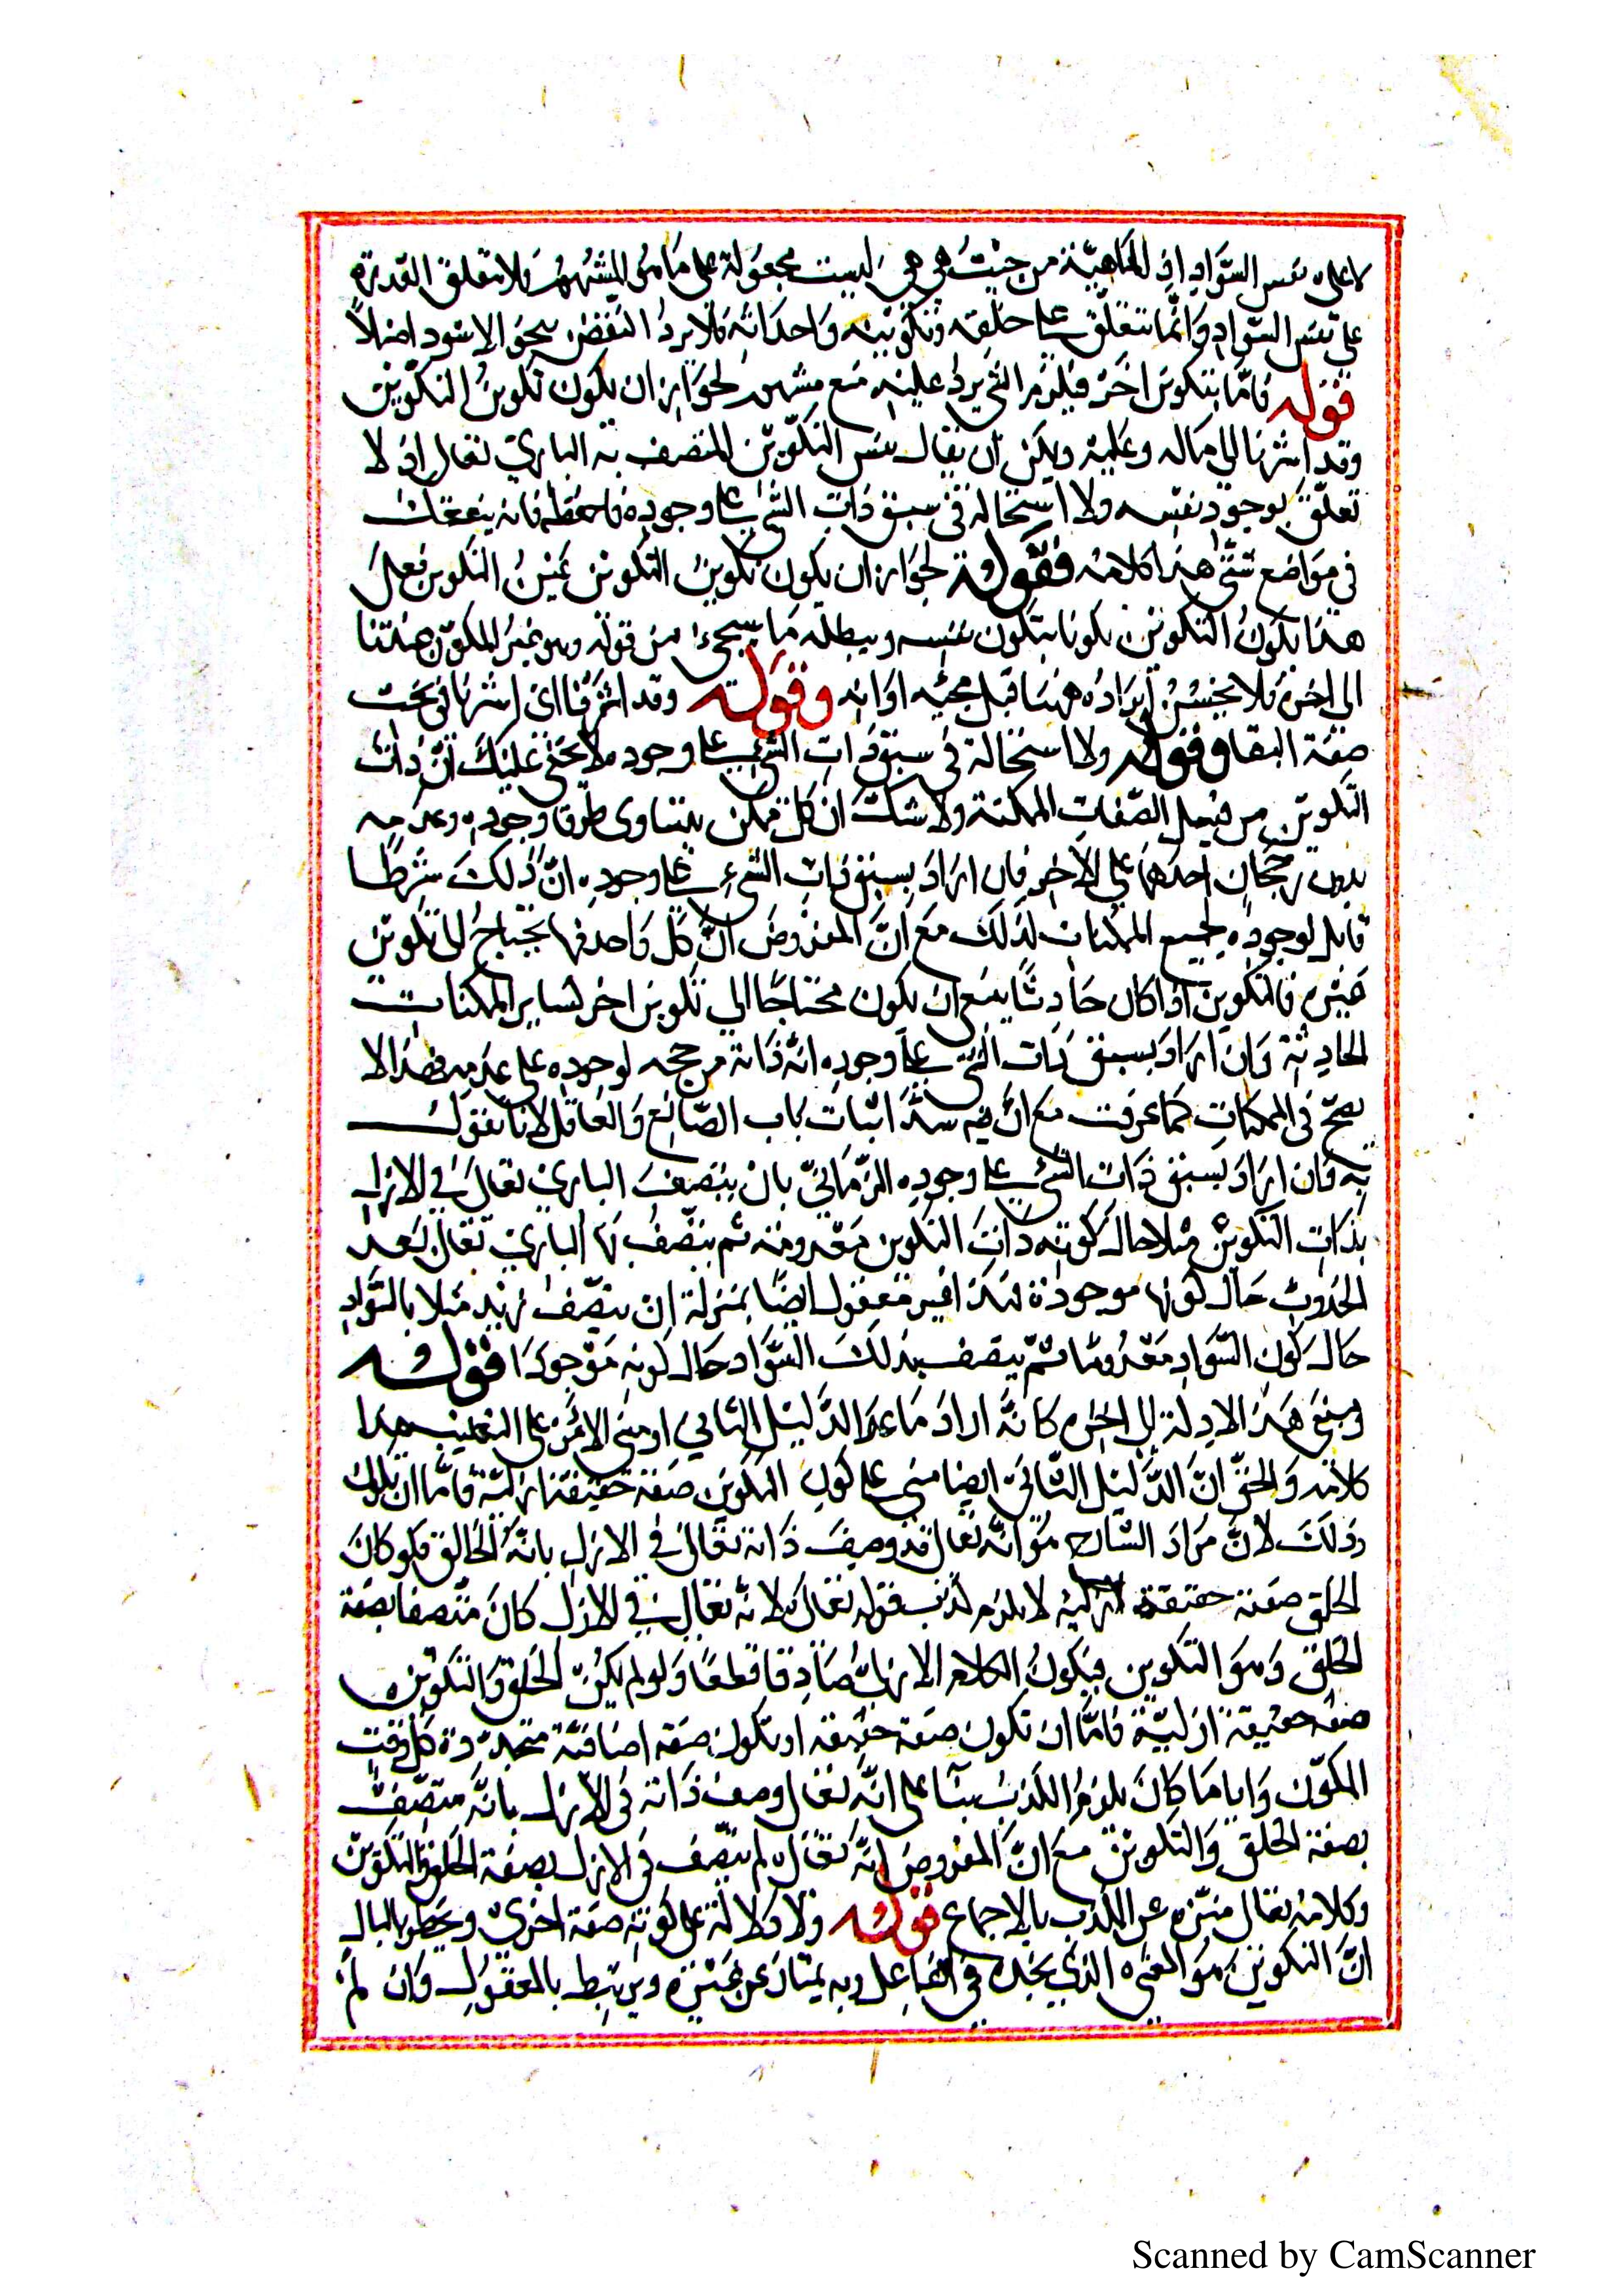 لا على نفس السّواد اذ الماهيّة من حيث هي هي ليست مجعولة على ما هو المشهور فلا تتعلق القدرة
على نفس السّواد وانّما تتعلّق على خلقه وتكوينه واحداثه فلا يردُ النقض بنحو الاسود اصلاً
قوله فامّا بتكوين اخر فيلزم الخ يرد عليه منع مشهور لجواز ان يكون تكوينُ التكوين
وقد اشرنا الى ماله وعليه ويمكن ان يقال نفس التكوين المتصف به الباري تعالى اذ لا
تعلّق لوجود نفسه ولا استحالة في سبق ذات الشيء على وجوده فاحفظه فانه ينفعك
في مواضع شتّى هذا كلامه فقوله لجواز ان يكون تكوينُ التكوين عينُ التكوين فعلى
هذا يكونُ التكوين مكونا بتكون نفسه ويبطله ما سيجيء من قوله وهو غيرُ المكوّن عندنا
الى اخره فلا يحسنُ إيرادُه ههنا قبل مجيئه اوانه وقوله وقد اشرنا اى اشرنا في بحث
صفة البقا وقوله ولا استحالة في سبق ذات الشيء على وجوده لا يخفى عليك انّ ذات
التّكوين من قبيل الصّفات الممكنة ولا شك انّ كل ممكن يتساوى طرفا وجوده وعدمه
بدون رجحان احدهما على الآخر فان اراد بسبق ذات الشيء على وجوده انّ ذلك شرطا
قابل لوجوده فجميع الممكنات كذلك مع انّ المفروض انّ كلّ واحد منها يحتاج الى تكوين
غيره فالتكوين اذا كان حادثًا يمنع ان يكون محتاجًا الى تكوين اخر كساير الممكنات
الحادثة وان اراد بسبق ذات الشي على وجوده انّه ذاته مرجحه لوجوده على عدمه فهذا لا
يصحّ في الممكنات كما عرفت مع انّ فيه سدَّ اثبات باب الصّانع والعاقل لا يقول
به وان اراد بسبق ذات الشيء على وجوده الزّمانىّ بان يتصف الباري تعالى في الازل
بذات التكوين مثلا حال كونه ذات التكوين معدومة ثم يتّصف بها الباري تعالى بعد
الحدوث حال كونها موجودة فهذا غير معقول ايضًا بمنزلة ان يتّصف زيد مثلا بالسّواد
حال كون السّواد معدومًا ثمّ يتصف بذلك السّواد حال كونه موجودًا قوله
ومبنى هذه الادلة الى اخره كانّه اراد ما عدا الدّليل الثاني او مبنى الاكثر على التغليب هذا
كلامه والحقّ انّ الدّليل الثّاني ايضا مبنى على كون التكوين صفة حقيقة ازليّة فامّا ان يكون
وذلك لانّ مراد الشّارح هو انّه تعالى قد وصف ذاته تعالى في الازل بانّه الخالق فلو كان
الخلق صفة حقيقة ازلية لا يلزم كذب قوله تعالى لانّه تعالى في الازل كان متّصفا بصفة
الخلق وهو التكوين فيكونُ الكلام الازلىّ صادقا قطعًا ولو لم يكن الخلق والتكوين
صفة حقيقة ازليّة فامّا ان تكون صفة حقيقة او تكون صفة اضافيّة متجدّدة كل وقت
المكوّن وايا ما كان يلزم الكذب بناءً على انّه تعالى وصف ذاته في الازل بانّه متّصفٌ
بصفة الخلق والتكوين مع انّ المفروض انّه تعالى لم يتّصف في الازل بصفة الخلق والتكوين
وكلامه تعالى منزّه عن الكذب بالاجماع قوله ولا دلالة على كونه صفة اخرى ويخطر بالبال
انّ التكوين هو المعنى الذي يجده في الفاعل وبه يمتاز عن غيره ويرتبط بالمفعول وان لم
Scanned by CamScanner